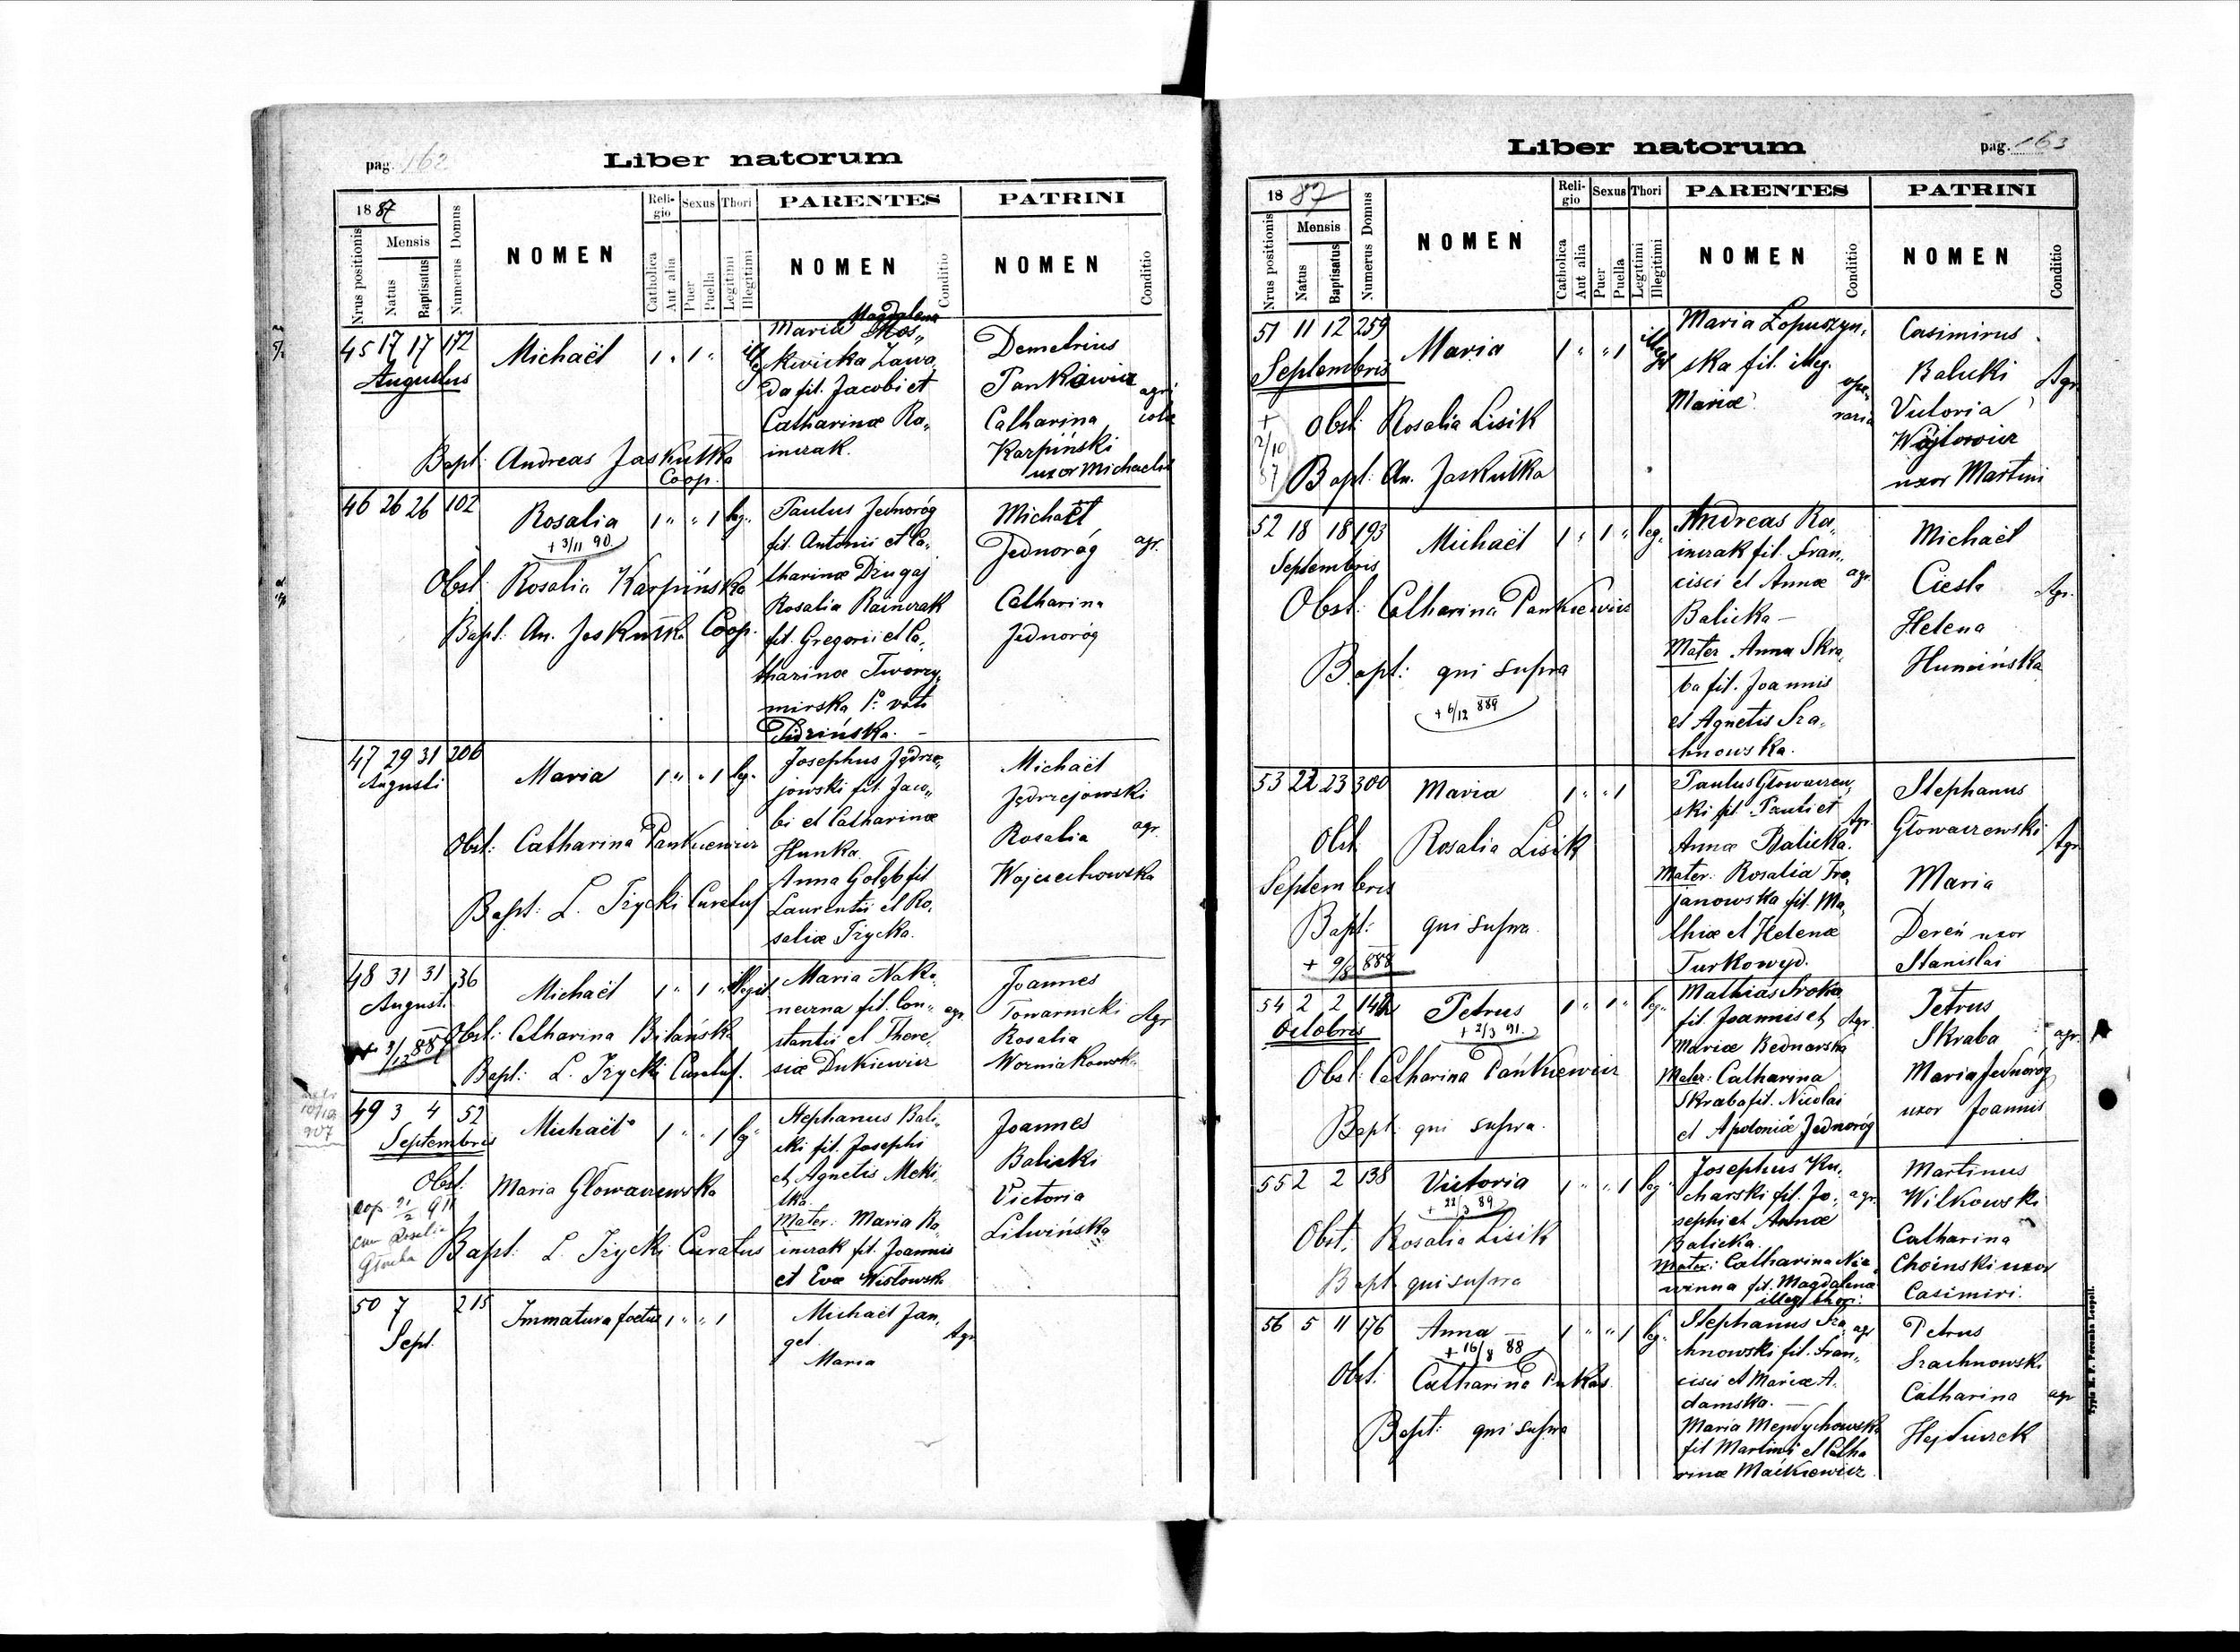 pag. 162
Liber natorum
1887
Nrus positionis
Mensis
Natus
Baptisatus
Numerus Domus
NOMEN
Religio
Catholica
Aut alia
Sexus
Puer
Puella
Thori
Legitimi
Illegitimi
PARENTES
NOMEN
Conditio
PATRINI
NOMEN
Conditio
45 17 17 172
Augustus
Michaël
1 " 1 "
Magdalena
Maria Mos„
kwicka Zawa„
da fil. Jacobi et
Catharinæ Ra„
inczak.
Demetrius
Pankiewicz
agri
colæ
Catharina
Karpiński
uxor Michaelis
Bapt: Andreas Jaskułka
Coop.
46 26 26 102
Rosalia
+ 3/11 90
1 " " 1 leg.
Paulus Jednoróg
fil. Antonii et Ca„
tharinæ Dzugaj
Rosalia Rainczak
fil. Gregorii et Ca„
tharinæ Tworzy„
mirska 1º voti
Michaël
Jednoróg
agr.
Catharina
Jednoróg
Obst: Rosalia Karpińska
Bapt: An. Jaskułka Coop.
47 29 31 206
Augusti
Maria
1 " " 1 leg.
Josephus Jędrze„
jowski fil. Jaco„
bi et Catharinæ
Hunka.
Anna Gołąb fil
Laurentii et Ro„
saliæ Trycka.
Michaël
Jędrzejowski
agr.
Rosalia
Wojciechowska
Obst: Catharina Pankiewicz
Bapt: L. Trycki Curatus
48 31 31 36
August.
Michaël
1 " 1 " illegit
Maria Nako„
neczna fil. Con„
agr.
stantii et There„
siæ Dukiewicz
Joannes
Towarnicki
Agr
Rosalia
Obst: Catharina Bilańska
Bapt: L. Trycki Curatus.
49 3 4 52
Septembris
Michaël
1 " " 1 leg
Stephanus Bali„
cki fil. Josephi
et Agnetis Meki„
tka
Mater: Maria Ra„
inczak fil. Joannis
et Evæ Wisłowska
Joannes
Balicki
Victoria
Litwińska
Obst: Maria Głowaczewska
cop 21/2 911
cum Rosalia
Bapt: L. Trycki Curatus
50 7 215
Sept.
Immatura foetus
1 " " 1
Michaël Jan„
gel
Agr
Maria
pag. 163
Liber natorum
1887
Nrus positionis
Mensis
Natus
Baptisatus
Numerus Domus
NOMEN
Religio
Catholica
Aut alia
Sexus
Puer
Puella
Thori
Legitimi
Illegitimi
PARENTES
NOMEN
Conditio
PATRINI
NOMEN
Conditio
51 11 12 259
Septembris
Maria
1 " " 1 illegit
Maria Łopuszyń„
ska fil. illeg.
Mariæ
ope„
raria
Casimirus
Balicki
Agr
Victoria
Wójtowicz
uxor Martini
+
2/10
87
Obst: Rosalia Lisik
Bapt: An. Jaskułka
52 18 18 193
Septembris
Michaël
1 " 1 " leg.
Andreas Ra„
inczak fil. Fran„
cisci et Annæ
agr
Balicka —
Mater Anna Skra„
ba fil. Joannis
et Agnetis Sza„
chnowska.
Michaël
Cieśla
Agr.
Helena
Huncińska
Obst: Catharina Pankiewicz
Bapt: qui supra
+ 6/12 889
53 22 23 300
Maria
1 " " 1
Paulus Głowaczew„
ski fil. Pauli et
Agr.
Annæ Balicka.
Mater: Rosalia Tro„
janowska fil. Ma„
thiæ et Helenæ
Turkowyd.
Stephanus
Głowaczewski
Agr
Maria
Dereń uxor
Stanislai
Obst: Rosalia Lisik
Septembris
Bapt: qui supra
+ 9/8 888
54 2 2 142
Octobris
Petrus
+ 2/3 91.
1 " 1 " leg.
Mathias Sroka
fil. Joannis et
Agr.
Mariæ Bednarska
Mater: Catharina
Skraba fil. Nicolai
et Apoloniæ Jednoróg
Petrus
Skraba
agr.
Maria Jednoróg
uxor Joannis
Obst: Catharina Pankiewicz
Bapt: qui supra.
55 2 2 138
Victoria
+ 22/3 89
1 " " 1 leg
Josephus Ku„
charski fil. Jo„
agr.
sephi et Annæ
Balicka.
Mater: Catharina Nie„
winna fil. Magdalenæ
illegl thori.
Martinus
Wilkowski
Catharina
Choinski uxor
Casimiri.
Obst: Rosalia Lisik
Bapt: qui supra
56 5 11 176
Anna
+ 16/8 88
1 " " 1 leg.
Stephanus Sza„
agr
chnowski fil. Fran„
cisci et Mariæ A„
damska. —
Maria Mendychowska
fil Martini et Catha
rinæ Maćkiewicz
Petrus
Szachnowski
Catharina
agr
Hejduczek
Obst: Catharina Pukas
Bapt: qui supra